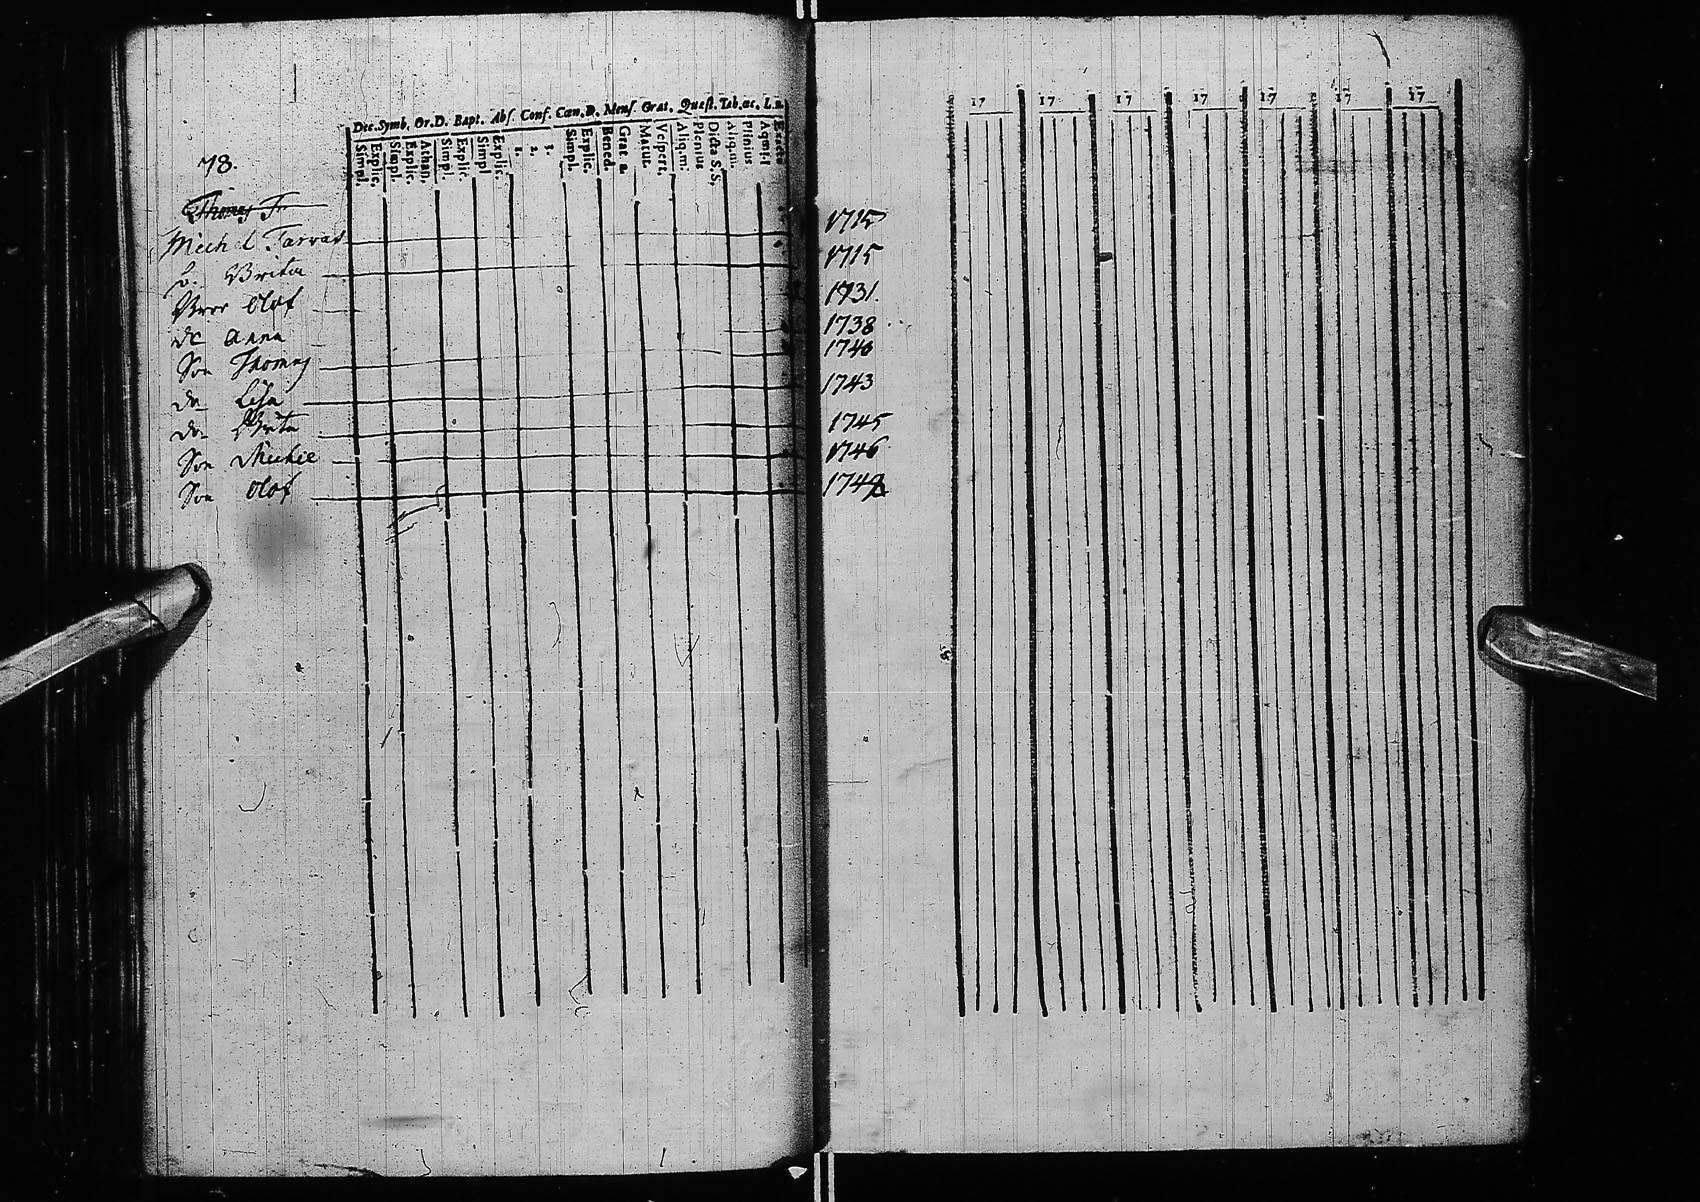 Dec. Symb. Or. D. Bapt. Abs. Conf. Cœn. D. Mens. Grat. Quest. Tab. œc. L.
Simpl. Explic. Simpl. Explic. Athan. Simpl. Explic. Simpl. Explic. 1. 2. 3. Simpl. Explic. Bened. Grat. a. Matut. Vespert. Aliq. m. Plenius Dicta S.S. Aliq. m. Plenius
78.
Thomas 1715
Mich el Tarvas 1715
h. Brita 1731.
Bror Olof 1738
do Anna 1740
Son Thomas 1743
do Lisa 1745
do Brita 1746
Son Michel
Son Olof
17 17 17 17 17 17 17